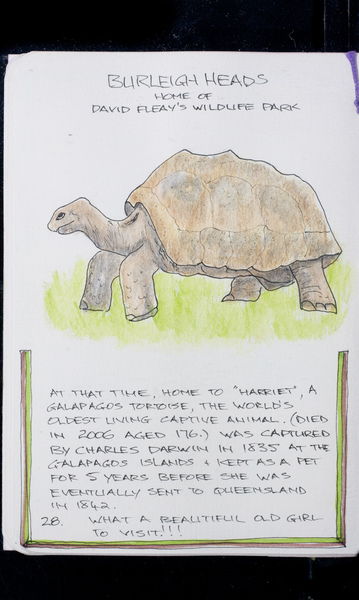 BURLEIGH HEADS
HOME OF
DAVID FLEAY'S WILDLIFE PARK
AT THAT TIME, HOME TO "HARRIET", A
GALAPAGOS TORTOISE, THE WORLD'S
OLDEST LIVING CAPTIVE ANIMAL. (DIED
IN 2006 AGED 176.) WAS CAPTURED
BY CHARLES DARWIN IN 1835 AT THE
GALAPAGOS ISLANDS + KEPT AS A PET
FOR 5 YEARS BEFORE SHE WAS
EVENTUALLY SENT TO QUEENSLAND
IN 1842.
28. WHAT A BEAUTIFUL OLD GIRL
TO VISIT!!!